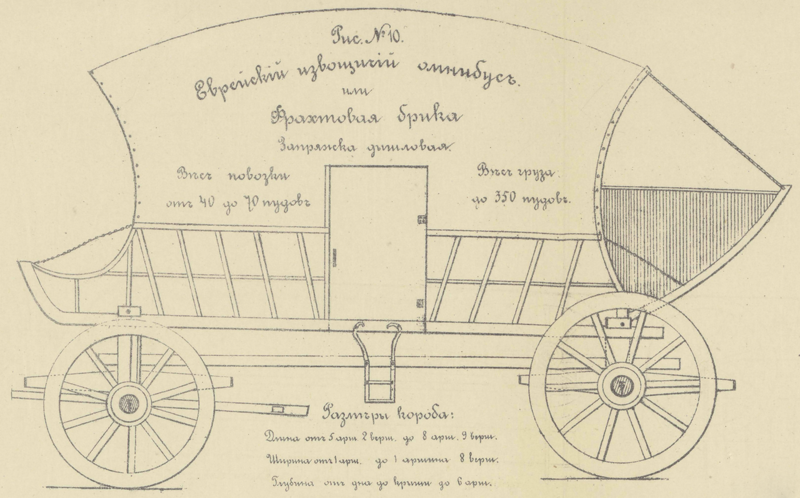 Рис. № 10.
Еврейскій извощичій омнибусъ.
или
Фрахтовая брика
Запряжка дишловая.
Вѣсъ повозки
отъ 40 до 70 пудовъ
Вѣсъ груза
до 350 пудовъ.
Размѣры короба:
Длина отъ 5 арш. 2 верш. до 8 арш. 9 верш.
Ширина отъ 1 арш. до 1 аршина 8 верш.
Глубина отъ дна до крыши до 6 арш.